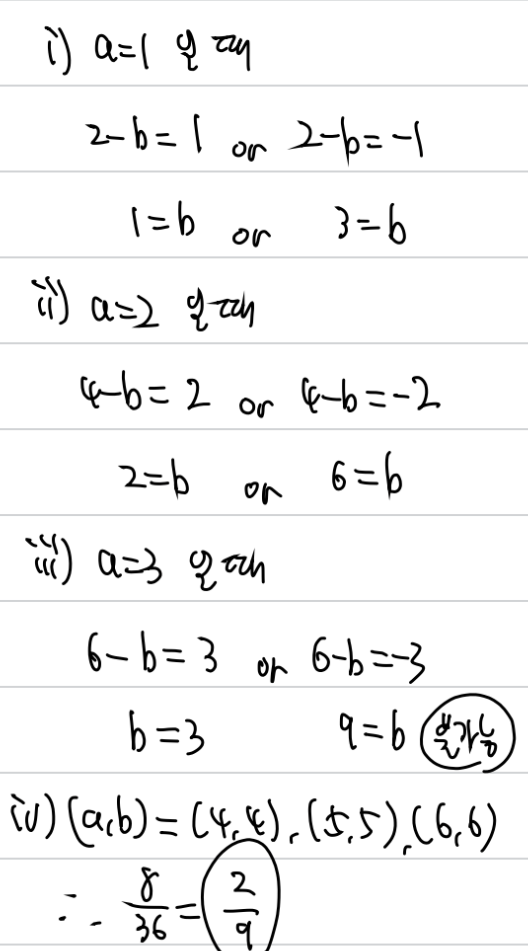 i) a=1 일 때
2-b=1 or 2-b=-1
1=b or 3=b
ii) a=2 일 때
4-b=2 or 4-b=-2
2=b or 6=b
iii) a=3 일 때
6-b=3 or 6-b=-3
b=3 9=b 불가능
iv) (a,b)=(4,4),(5,5),(6,6)
∴ 8/36=2/9